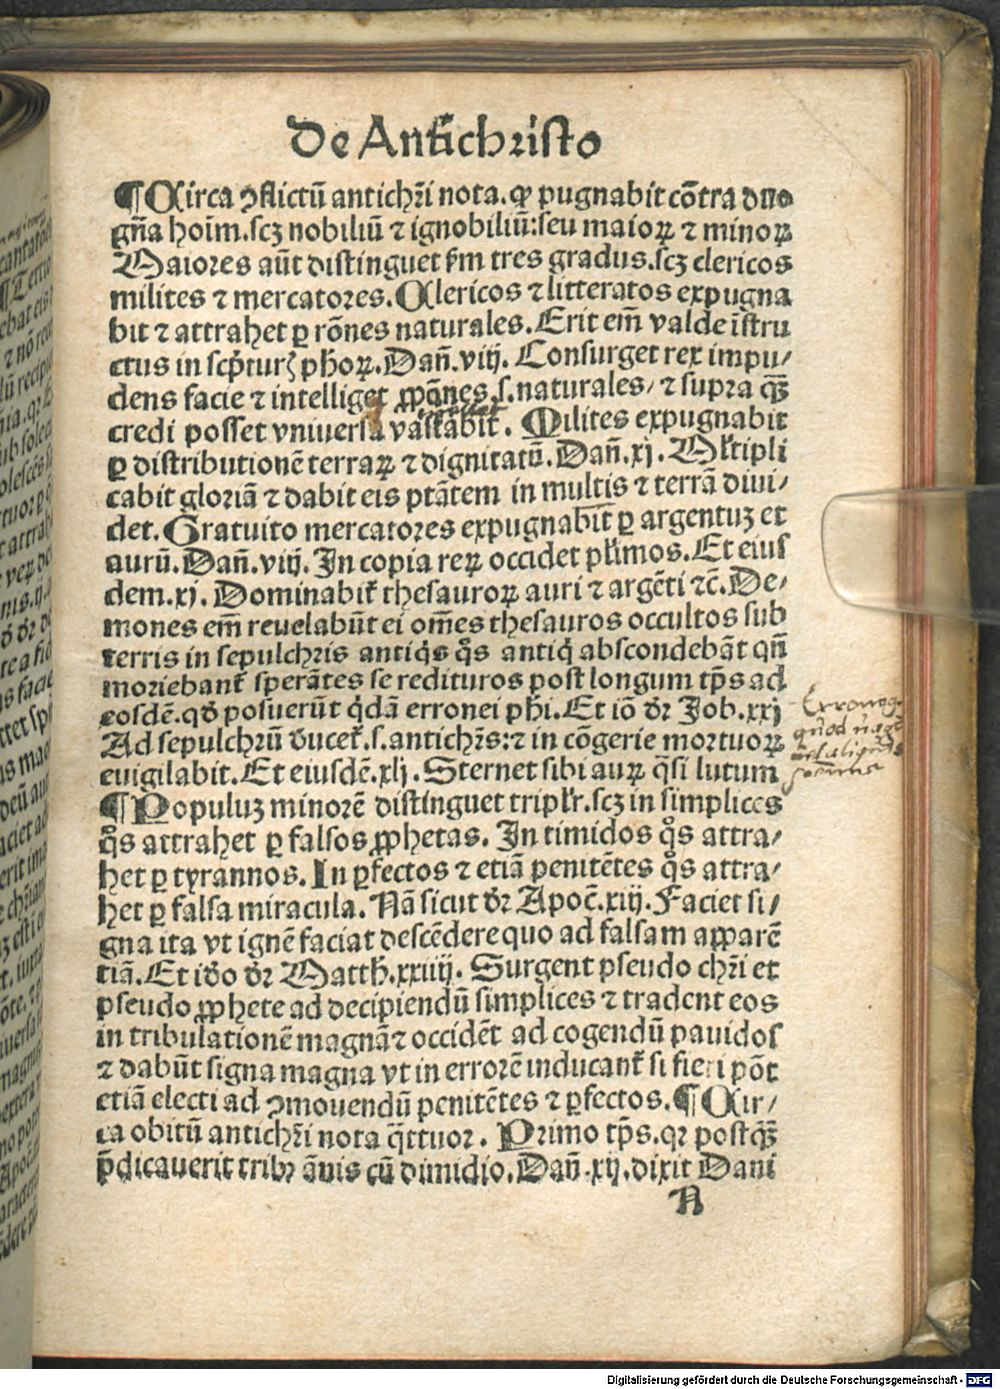 De Antichristo
¶ Circa ꝯflictū antichr̄i nota. ꝙ pugnabit cōtra duo
gn̄a hoīm. scꝫ nobiliū ⁊ ignobiliū: seu maioꝝ ⁊ minoꝝ
Maiores aūt distinguet ẜm tres gradus. scꝫ clericos
milites ⁊ mercatores. Clericos ⁊ litteratos expugna
bit ⁊ attrahet ꝑ rōnes naturales. Erit em̄ valde īstru
ctus in scṗturꝭ phoꝝ. Dañ. viij. Consurget rex impu/
dens facie ⁊ intelliget ꝓpōnes .s. naturales/ ⁊ supra qꝫ̄
credi posset vniuersa vastabit̄. Milites expugnabit
ꝑ distributionē terraꝝ ⁊ dignitatū. Dañ. xj. Ml̄tipli
cabit gloriā ⁊ dabit eis ptātem in multis ⁊ terrā diui/
det. Gratuito mercatores expugnabit ꝑ argentuꝫ et
aurū. Dañ. viij. In copia reꝝ occidet pl̄imos. Et eius
dem. xj. Dominabit̄ thesauroꝝ auri ⁊ argēti ⁊c̄. De/
mones em̄ reuelabūt ei om̄es thesauros occultos sub
terris in sepulchris antiq̇s q̊s antiq̇ abscondebāt qn̄
moriebant̄ sperātes se redituros post longum tp̄s ad
eosdē. qđ posuerūt q̇dā erronei phī. Et iō dr̄ Job. xxj
Ad sepulchrū ducet̄ .s. antichr̄s: ⁊ in cōgerie mortuoꝝ
euigilabit. Et eiusdē. xlj. Sternet sibi auꝝ q̄si lutum
¶ Populuꝫ minorē distinguet triplr̄. scꝫ in simplices
q̊s attrahet ꝑ falsos ꝓphetas. In timidos q̊s attra/
het ꝑ tyrannos. In ꝑfectos ⁊ etiā penitētes q̊s attra/
het ꝑ falsa miracula. Nā sicut dr̄ Apoc̄. xiij. Faciet si/
gna ita vt ignē faciat descēdere quo ad falsam apparē
tiā. Et iđo dr̄ Matth̄. xxiiij. Surgent pseudo chr̄i et
pseudo ꝓphete ad decipiendū simplices ⁊ tradent eos
in tribulationē magnā ⁊ occidēt ad cogendū pauidos
⁊ dabūt signa magna vt in errorē inducant̄ si fieri pōt
etiā electi ad ꝯmouendū penitētes ⁊ ꝑfectos. ¶ Cir/
ca obitū antichr̄i nota q̄ttuor. Primo tp̄s. qꝛ postqꝫ̄
p̄dicauerit tribꝫ ānis cū dimidio. Dañ. xij. dixit Dani
A
Digitalisierung gefördert durch die Deutsche Forschungsgemeinschaft - DFG